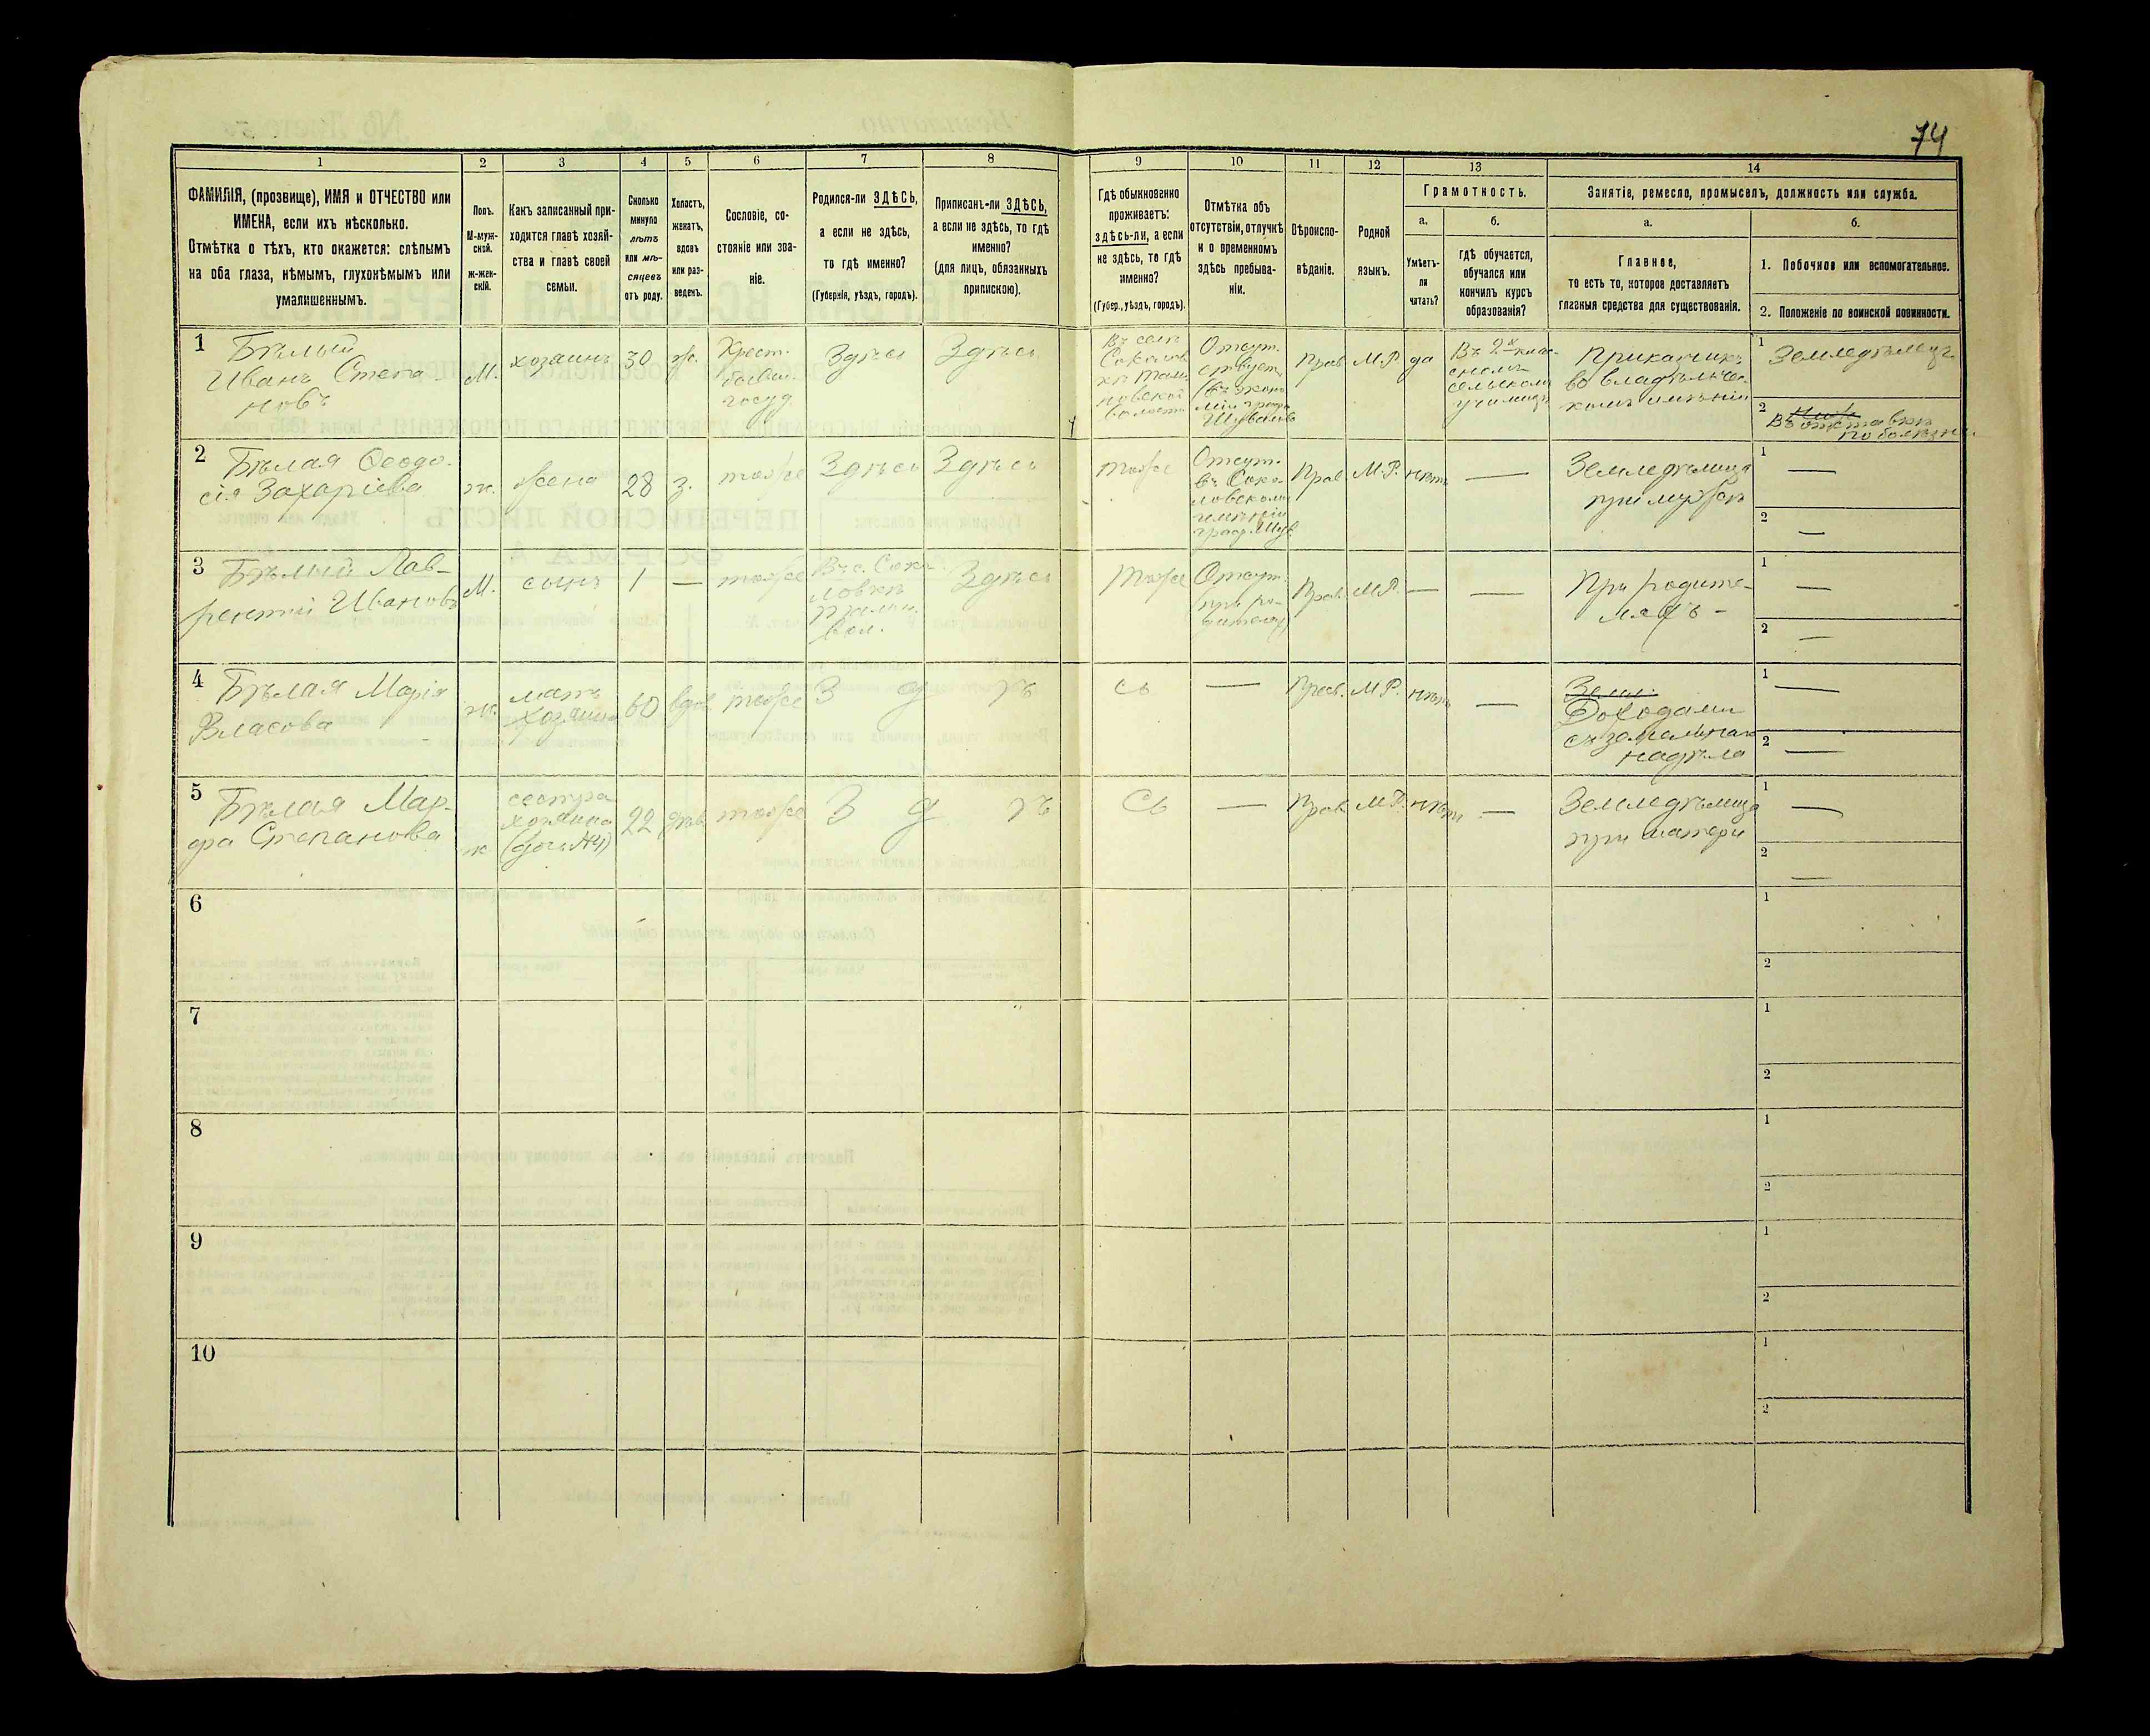 74
1
2
3
4
5
6
7
8
9
10
11
12
13
14
ФАМИЛІЯ, (прозвище), ИМЯ и ОТЧЕСТВО или
ИМЕНА, если ихъ нѣсколько.
Отмѣтка о тѣхъ, кто окажется: слѣпымъ
на оба глаза, нѣмымъ, глухонѣмымъ или
умалишеннымъ.
Полъ.
М-муж-
ской.
ж-жен-
скій.
Какъ записанный при-
ходится главѣ хозяй-
ства и главѣ своей
семьи.
Сколько
минуло
лѣтъ
или мѣ-
сяцевъ
отъ роду.
Холостъ,
женатъ,
вдовъ
или раз-
веденъ.
Сословіе, со-
стояніе или зва-
ніе.
Родился-ли ЗДѢСЬ,
а если не здѣсь,
то гдѣ именно?
(Губернія, уѣздъ, городъ).
Приписанъ-ли ЗДѢСЬ,
а если не здѣсь, то гдѣ
именно?
(для лицъ, обязанныхъ
припискою).
Гдѣ обыкновенно
проживаетъ:
здѣсь-ли, а если
не здѣсь, то гдѣ
именно?
(Губер., уѣздъ, городъ).
Отмѣтка объ
отсутствіи, отлучкѣ
и о временномъ
здѣсь пребыва-
ніи.
Вѣроиспо-
вѣданіе.
Родной
языкъ.
Грамотность.
а.
Умѣетъ-
ли
читать?
б.
гдѣ обучается,
обучался или
кончилъ курсъ
образованія?
Занятіе, ремесло, промыселъ, должность или служба.
а.
Главное,
то есть то, которое доставляетъ
главныя средства для существованія.
б.
1. Побочное или вспомогательное.
2. Положеніе по воинской повинности.
1
Бѣлый
Иванъ Степа-
новъ
М.
хозяинъ
30
ж.
Крест.
бывш.
госуд.
Здѣсь
Здѣсь
Въ селѣ
Соколов
кѣ Таль
новской
волости
Отсут-
ствуетъ
(въ эконо
міи графа
Шувалова
Прав.
М.Р.
да
Въ 2х клас-
сномъ
сельском
училищѣ
Приказчикъ
во владѣльчес-
комъ имѣніи
1
Земледѣлецъ
2
Въ отставкѣ
по болѣзни
2
Бѣлая Ѳеодо-
сія Захаріева
ж.
Жена
28
з.
тоже
Здѣсь
Здѣсь
тоже
Отсут.
въ Соко-
ловскомъ
имѣніи
граф. Шув
Прав.
М.Р.
нѣтъ
—
Земледѣлица
при мужѣ
1
—
2
—
3
Бѣлый Лав-
рентій Ивановъ
М.
сынъ
1
—
тоже
Въ с. Соко
ловкѣ
Тальн.
вол.
Здѣсь
тоже
Отсут.
(при ро-
дителях)
Прав.
М.Р.
—
—
При родите-
ляхъ -
1
—
2
—
4
Бѣлая Марія
Власова
ж.
мать
хозяина
60
вдов.
тоже
З д ѣ
сь
—
Прав.
М.Р.
нѣтъ
—
Земл.
Доходами
съ земельнаго
надѣла
1
—
2
—
5
Бѣлая Мар-
фа Степанова
ж
сестра
хозяина
(дочь №4)
22
дѣв.
тоже
З д ѣ
сь
—
Прав.
М.Р.
нѣтъ
—
Земледѣлица
при матери
1
—
2
—
6
1
2
7
1
2
8
1
2
9
1
2
10
1
2